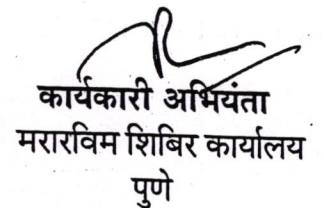 कार्यकारी अभियंता
मरारविम शिबिर कार्यालय
पुणे